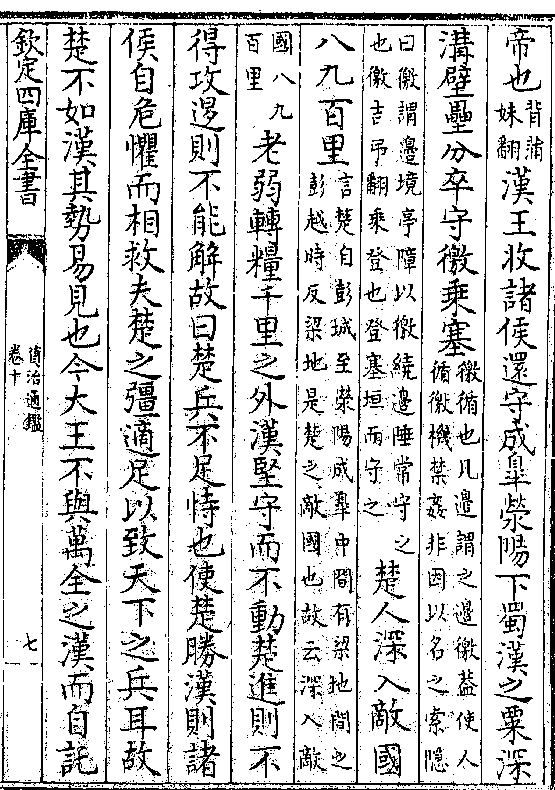 帝也背蒲
妹翻漢王收諸侯還守成臯滎陽下蜀漢之粟深
溝壁壘分卒守徼乗塞徼循也凡邊謂之邊徼葢使人
循徼機禁姦非因以名之索隱
曰徼謂邊境亭障以徼繞邊陲常守之
也徼吉弔翻乘登也登塞垣而守之楚人深入敵國
八九百里言楚自彭城至滎陽成臯中間有梁地間之
彭越時反梁地是楚之敵國也故云深入敵
國八九
百里老弱轉糧千里之外漢堅守而不動楚進則不
得攻退則不能解故曰楚兵不足恃也使楚勝漢則諸
侯自危懼而相救夫楚之彊適足以致天下之兵耳故
楚不如漢其勢易見也今大王不與萬全之漢而自託
欽定四庫全書
資治通鑑
卷十
七